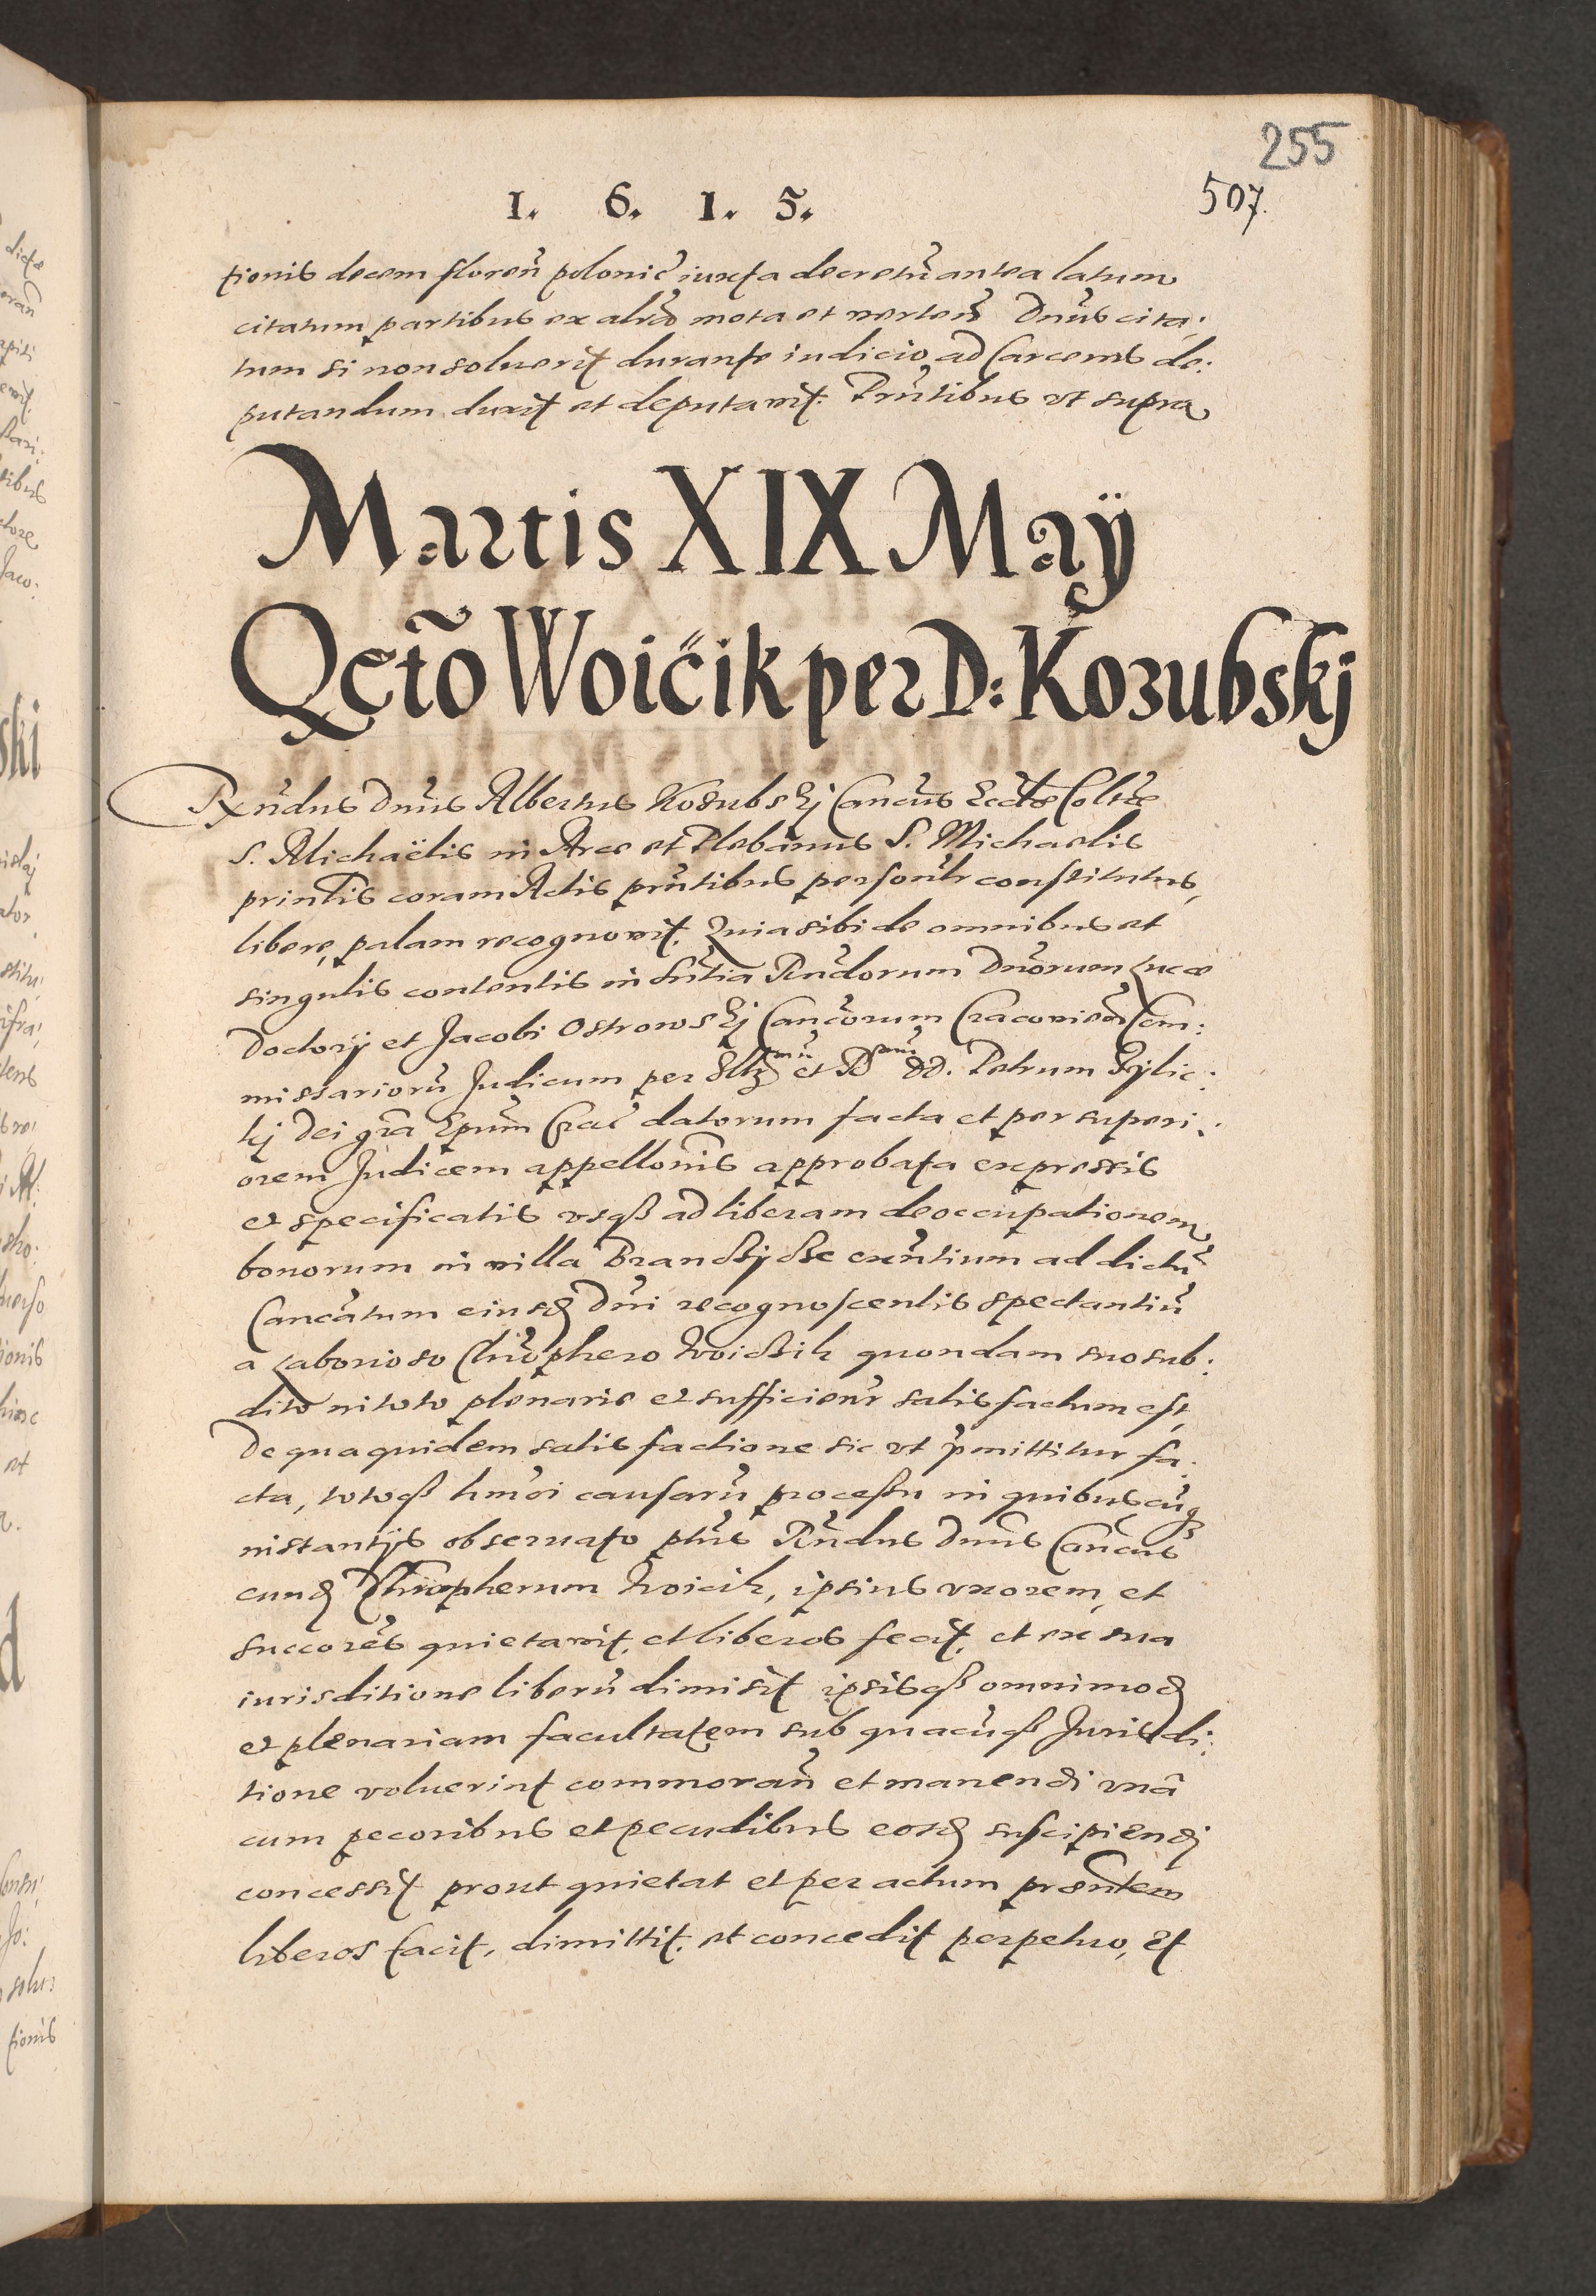 255
507.
1. 6. 1. 5.
tionis decem floreñ polonic̃ iuxta decretũ antea latum
citatum partibus ex mota et Dnũs cita:
tum si non soluerit durante iudicio ad Carceres de:
putandum duxit et deputavit. Prñtibus vt supra
Martis XIX Maÿ
Qctõ Woićik per D: Kozubskj
Rñdus Dnũs Albertus Kozubskj Canc̃us Eccłæ Collt̃æ
S. Michaëlis in Arce et Plebanus S. Michaelis
coram Actis prñtibus personłr constitutus,
libere, palam recognovit. Quia sibi de omnibus et
singulis contentis in sñtia Rñdorum Dnõrum Lucæ
Doctorij et Jacobi Ostrowskj Canc̃orum Cracovieñ Com:
missariorũ Judicum per Illmũ et Rmũ DD. Petrum Tÿlic:
kj Dei gr̃a Epum̃ Crac̃ datorum facta et per superi:
orem Judicem appellonis̃ approbata expressis
et specificatis vsqß ad liberam deoccupationem
bonorum in villa exñtium ad dictũ
Canc̃atum eiusd Dnĩ recognoscentis spectantiũ
a Laborioso Chrõphero Woićzik quondam suo sub:
dito in toto plenarie et sufficienr̃ satisfactum est,
De qua quidem satisfactione sic vt p̃mittitur fa:
cta, totoqß hmõi causarũ processu in quibuscũq
instantÿs obseruato pt̃us Rñdus Dnũs Canc̃us
eund Chrõpherum Woicik, ipsius vxorem, et
succorẽs quietavit, et liberos fecit, et ex sua
iurisditione liberũ dimisit ipsisqß omnimod
et plenariam facultatem sub quacũqß Jurisdi:
tione voluerint commorañ et manendi vnâ
cum pecoribus et pecudibus eosd suscipiendj
concessit prout quietat et per actum præñtem
liberos facit, dimittit, et concedit perpetuo, Et